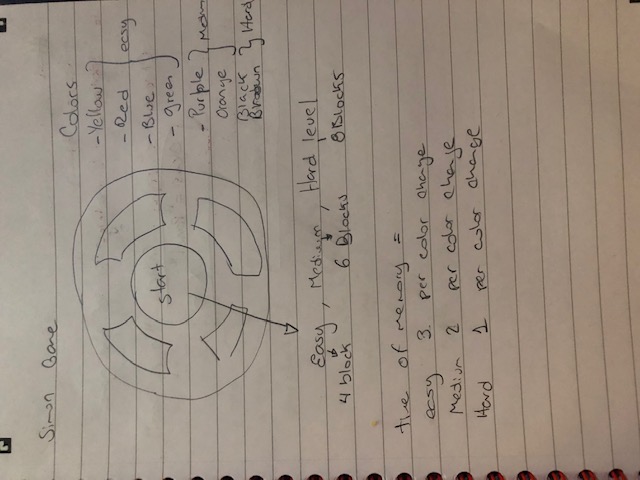 Simon Game
Colors
- Yellow
- Red
easy
- Blue
- green
- Purple
Medium
Orange
Black
Hard
Brown
start
Easy, Medium, Hard level
4 block 6 Blocks 8 Blocks
time of memory =
easy 3 per color change
Medium 2 per color change
Hard 1 per color change